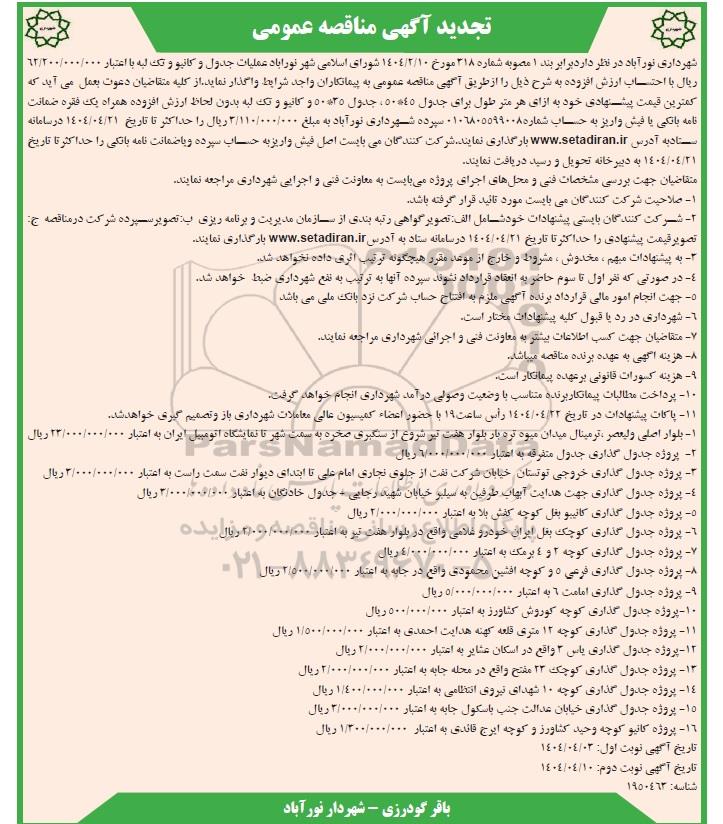 تجدید آگهی مناقصه عمومی
شهرداری نورآباد در نظر داردبرابر بند ۱ مصوبه شماره ۳۱۸ مورخ ۱۴۰۴/۲/۱۰ شورای اسلامی شهر نورآباد عملیات جدول و کانیو و تک لبه با اعتبار ۶۲/۲۰۰/۰۰۰/۰۰۰
ریال با احتساب ارزش افزوده به شرح ذیل را ازطریق آگهی مناقصه عمومی به پیمانکاران واجد شرایط واگذار نماید.از کلیه متقاضیان دعوت بعمل می آید که
کمترین قیمت پیشنهادی خود به ازای هر متر طول برای جدول ۴۵*۵۰ ، جدول ۳۵*۵۰ و کانیو و تک لبه بدون لحاظ ارزش افزوده همراه یک فقره ضمانت
نامه بانکی یا فیش واریز به حساب شماره۰۱۰۶۸۰۵۵۹۹۰۰۸ سپرده شهرداری نورآباد به مبلغ ۳/۱۱۰/۰۰۰/۰۰۰ ریال را حداکثر تا تاریخ ۱۴۰۴/۰۴/۲۱ درسامانه
ستادبه آدرس www.setadiran.ir بارگذاری نمایند.شرکت کنندگان می بایست اصل فیش واریزبه حساب سپرده ویاضمانت نامه بانکی را حداکثر تا تاریخ
۱۴۰۴/۰۴/۲۱ به دبیرخانه تحویل و رسید دریافت نمایند.
متقاضیان جهت بررسی مشخصات فنی و محل‌های اجرای پروژه می‌بایست به معاونت فنی و اجرایی شهرداری مراجعه نمایند.
۱- صلاحیت شرکت کنندگان می بایست مورد تائید قرار گرفته باشد.
۲- شرکت کنندگان بایستی پیشنهادات خودشامل الف:تصویرگواهی رتبه بندی از سازمان مدیریت و برنامه ریزی ب:تصویرسپرده شرکت درمناقصه ج:
تصویرقیمت پیشنهادی را حداکثر تا تاریخ ۱۴۰۴/۰۴/۲۱ درسامانه ستاد به آدرسwww.setadiran.ir بارگذاری نمایند.
۳- به پیشنهادات مبهم ، مخدوش ، مشروط و خارج از موعد مقرر هیچگونه ترتیب اثری داده نخواهد شد.
۴- در صورتی که نفر اول تا سوم حاضر به انعقاد قرارداد نشوند سپرده آنها به ترتیب به نفع شهرداری ضبط خواهد شد.
۵- جهت انجام امور مالی قرارداد برنده آگهی ملزم به افتتاح حساب شرکت نزد بانک ملی می باشد
۶- شهرداری در رد یا قبول کلیه پیشنهادات مختار است.
۷- متقاضیان جهت کسب اطلاعات بیشتر به معاونت فنی و اجرائی شهرداری مراجعه نمایند.
۸- هزینه اگهی به عهده برنده مناقصه میباشد.
۹- هزینه کسورات قانونی برعهده پیمانکار است.
۱۰- پرداخت مطالبات پیمانکاربرنده متناسب با وضعیت وصولی درآمد شهرداری انجام خواهد گرفت.
۱۱- پاکات پیشنهادات در تاریخ ۱۴۰۴/۰۴/۲۲ رأس ساعت۱۹ با حضور اعضاء کمیسیون عالی معاملات شهرداری باز وتصمیم گیری خواهدشد.
۱- بلوار اصلی ولیعصر ،ترمینال میدان میوه تره بار بلوار هفت تیر شروع از سنگبری صخره به سمت شهر تا نمایشگاه اتومبیل ایران به اعتبار ۲۳/۰۰۰/۰۰۰/۰۰۰ ریال
۲- پروژه جدول گذاری جدول متفرقه به اعتبار ۶/۰۰۰/۰۰۰/۰۰۰ ریال
۳- پروژه جدول گذاری خروجی توتستان خیابان شرکت نفت از جلوی نجاری امام علی تا ابتدای دیوار نفت سمت راست به اعتبار ۳/۰۰۰/۰۰۰/۰۰۰ ریال
۴- پروژه جدول گذاری جهت هدایت آبهای طرفین به سیلبر خیابان شهید رجایی + جدول خادنگان به اعتبار ۳/۰۰۰/۰۰۰/۰۰۰ ریال
۵- پروژه جدول گذاری کانیبو بغل کوچه کفش بلا به اعتبار ۲/۰۰۰/۰۰۰/۰۰۰ ریال
۶- پروژه جدول گذاری کوچک بغل ایران خودرو غلامی واقع در بلوار هفت تیر به اعتبار ۲/۰۰۰/۰۰۰/۰۰۰ ریال
۷- پروژه جدول گذاری کوچه ۲ و ۴ برمک به اعتبار ۴/۰۰۰/۰۰۰/۰۰۰ ریال
۸- پروژه جدول گذاری فرعی ۵ و کوچه افشین محمودی واقع در جابه به اعتبار ۲/۵۰۰/۰۰۰/۰۰۰ ریال
۹- پروژه جدول گذاری امامت ۶ به اعتبار ۵/۰۰۰/۰۰۰/۰۰۰ ریال
۱۰-پروژه جدول گذاری کوچه کوروش کشاورز به اعتبار ۵۰۰/۰۰۰/۰۰۰ ریال
۱۱- پروژه جدول گذاری کوچه ۱۲ متری قلعه کهنه هدایت احمدی به اعتبار ۱/۵۰۰/۰۰۰/۰۰۰ ریال
۱۲-پروژه جدول گذاری یاس ۳ واقع در اسکان عشایر به اعتبار ۲/۰۰۰/۰۰۰/۰۰۰ ریال
۱۳- پروژه جدول گذاری کوچک ۲۳ مفتح واقع در محله جابه به اعتبار ۲/۰۰۰/۰۰۰/۰۰۰ ریال
۱۴- پروژه جدول گذاری کوچه ۱۰ شهدای نیروی انتظامی به اعتبار ۱/۴۰۰/۰۰۰/۰۰۰ ریال
۱۵- پروژه جدول گذاری خیابان عدالت جنب باسکول جابه به اعتبار ۳/۰۰۰/۰۰۰/۰۰۰ ریال
۱۶- پروژه کانیو کوچه وحید کشاورز و کوچه ایرج قائدی به اعتبار ۱/۳۰۰/۰۰۰/۰۰۰ ریال
تاریخ آگهی نوبت اول: ۱۴۰۴/۰۴/۰۳
تاریخ آگهی نوبت دوم: ۱۴۰۴/۰۴/۱۰
شناسه: ۱۹۵۰۴۶۳
باقر گودرزی – شهردار نورآباد
ParsNamadData
پایگاه اطلاع رسانی مناقصه و مزایده
۰۲۱-۸۸۳۴۹۶۷۰-۵